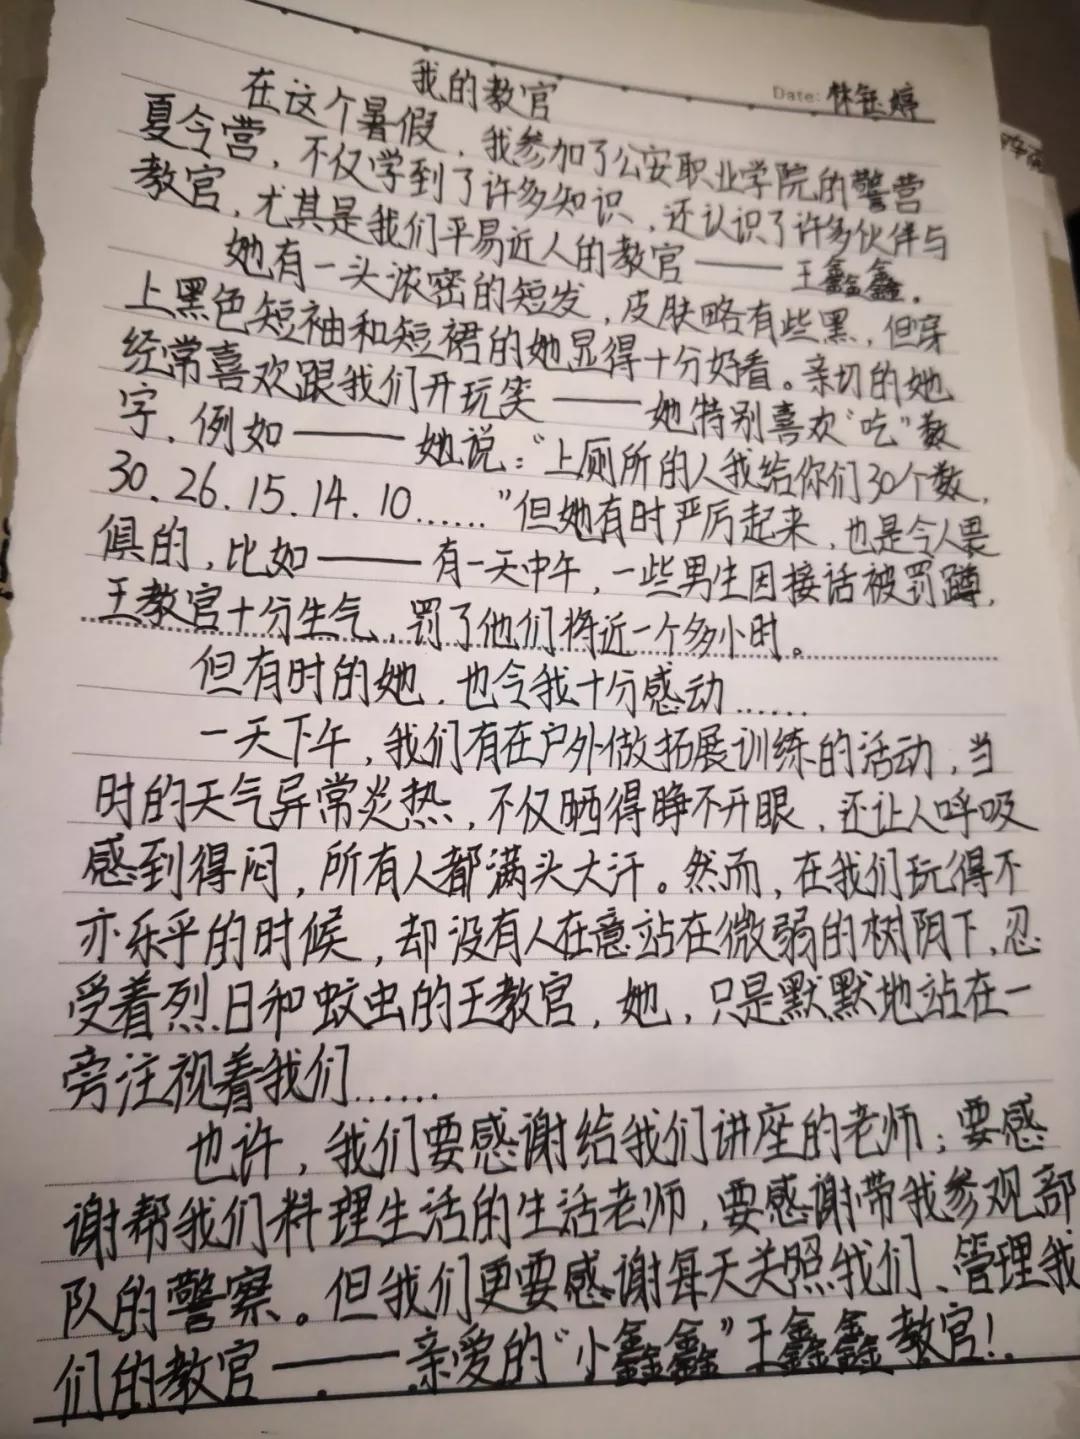 我的教官
Date: 林钰婷
在这个暑假，我参加了公安职业学院的警营
夏令营，不仅学到了许多知识，还认识了许多伙伴与
教官，尤其是我们平易近人的教官——王鑫鑫。
她有一头浓密的短发，皮肤略有些黑，但穿
上黑色短袖和短裙的她显得十分好看。亲切的她
经常喜欢跟我们开玩笑——她特别喜欢“吃”数
字，例如——她说：“上厕所的人我给你们30个数，
30、26、15、14、10……”但她有时严厉起来，也是令人畏
惧的，比如——有一天中午，一些男生因接话被罚蹲，
王教官十分生气，罚了他们将近一个多小时。
但有时的她，也令我十分感动……
一天下午，我们有在户外做拓展训练的活动，当
时的天气异常炎热，不仅晒得睁不开眼，还让人呼吸
感到得闷，所有人都满头大汗。然而，在我们玩得不
亦乐乎的时候，却没有人在意站在微弱的树阴下、忍
受着烈日和蚊虫的王教官，她，只是默默地站在一
旁注视着我们……
也许，我们要感谢给我们讲座的老师；要感
谢帮我们料理生活的生活老师，要感谢带我参观部
队的警察。但我们更要感谢每天关照我们、管理我
们的教官——亲爱的“小鑫鑫”王鑫鑫教官！